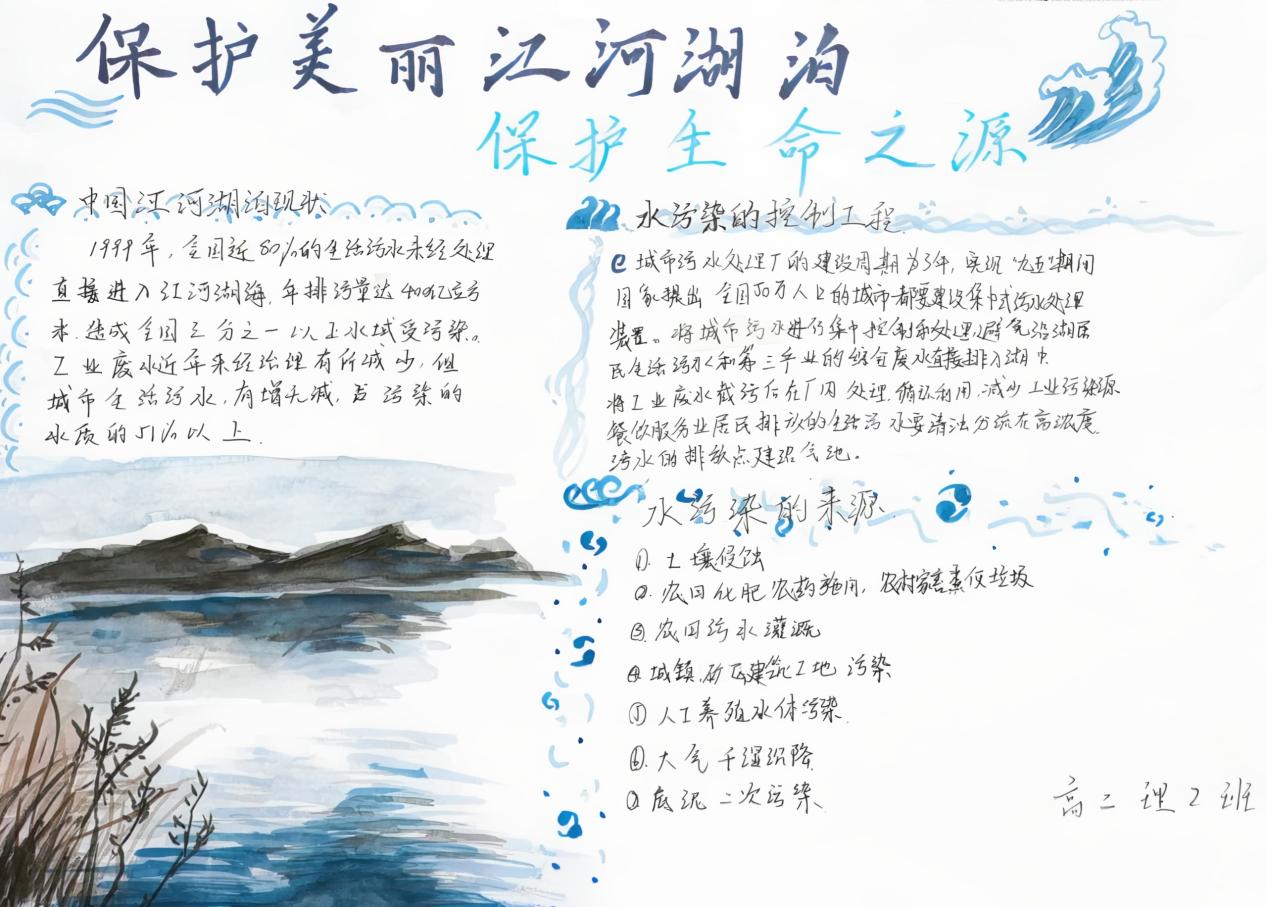 保护美丽江河湖泊
保护生命之源
中国江河湖泊现状
1999年，全国近80%的生活污水未经处理
直接进入江河湖海，年排污量达400亿立方
米，造成全国三分之一以上水域受污染。
工业废水近年来经治理有所减少，但
城市生活污水，有增无减，占污染的
水质的51%以上.
水污染的控制工程
城市污水处理厂的建设周期为3年，实现"九五"期间
国家提出 全国50万人上的城市都要建设集中式污水处理
装置。将城市污水进行集中控制和处理，避免沿湖居
民生活污水和第三产业的综合废水直接排入湖中.
将工业废水截污后在厂内处理.循环利用，减少工业污染源
餐饮服务业居民排放的生活污水要清浊分流在高浓度
污水的排放点建沼气池。
水污染的来源
①.土壤侵蚀
②.农田化肥农药施用，农村家畜粪便垃圾
③.农田污水灌溉
④城镇，矿区建筑工地污染
⑤人工养殖水体污染.
⑥.大气干湿沉降
⑦底泥二次污染
高二理2班